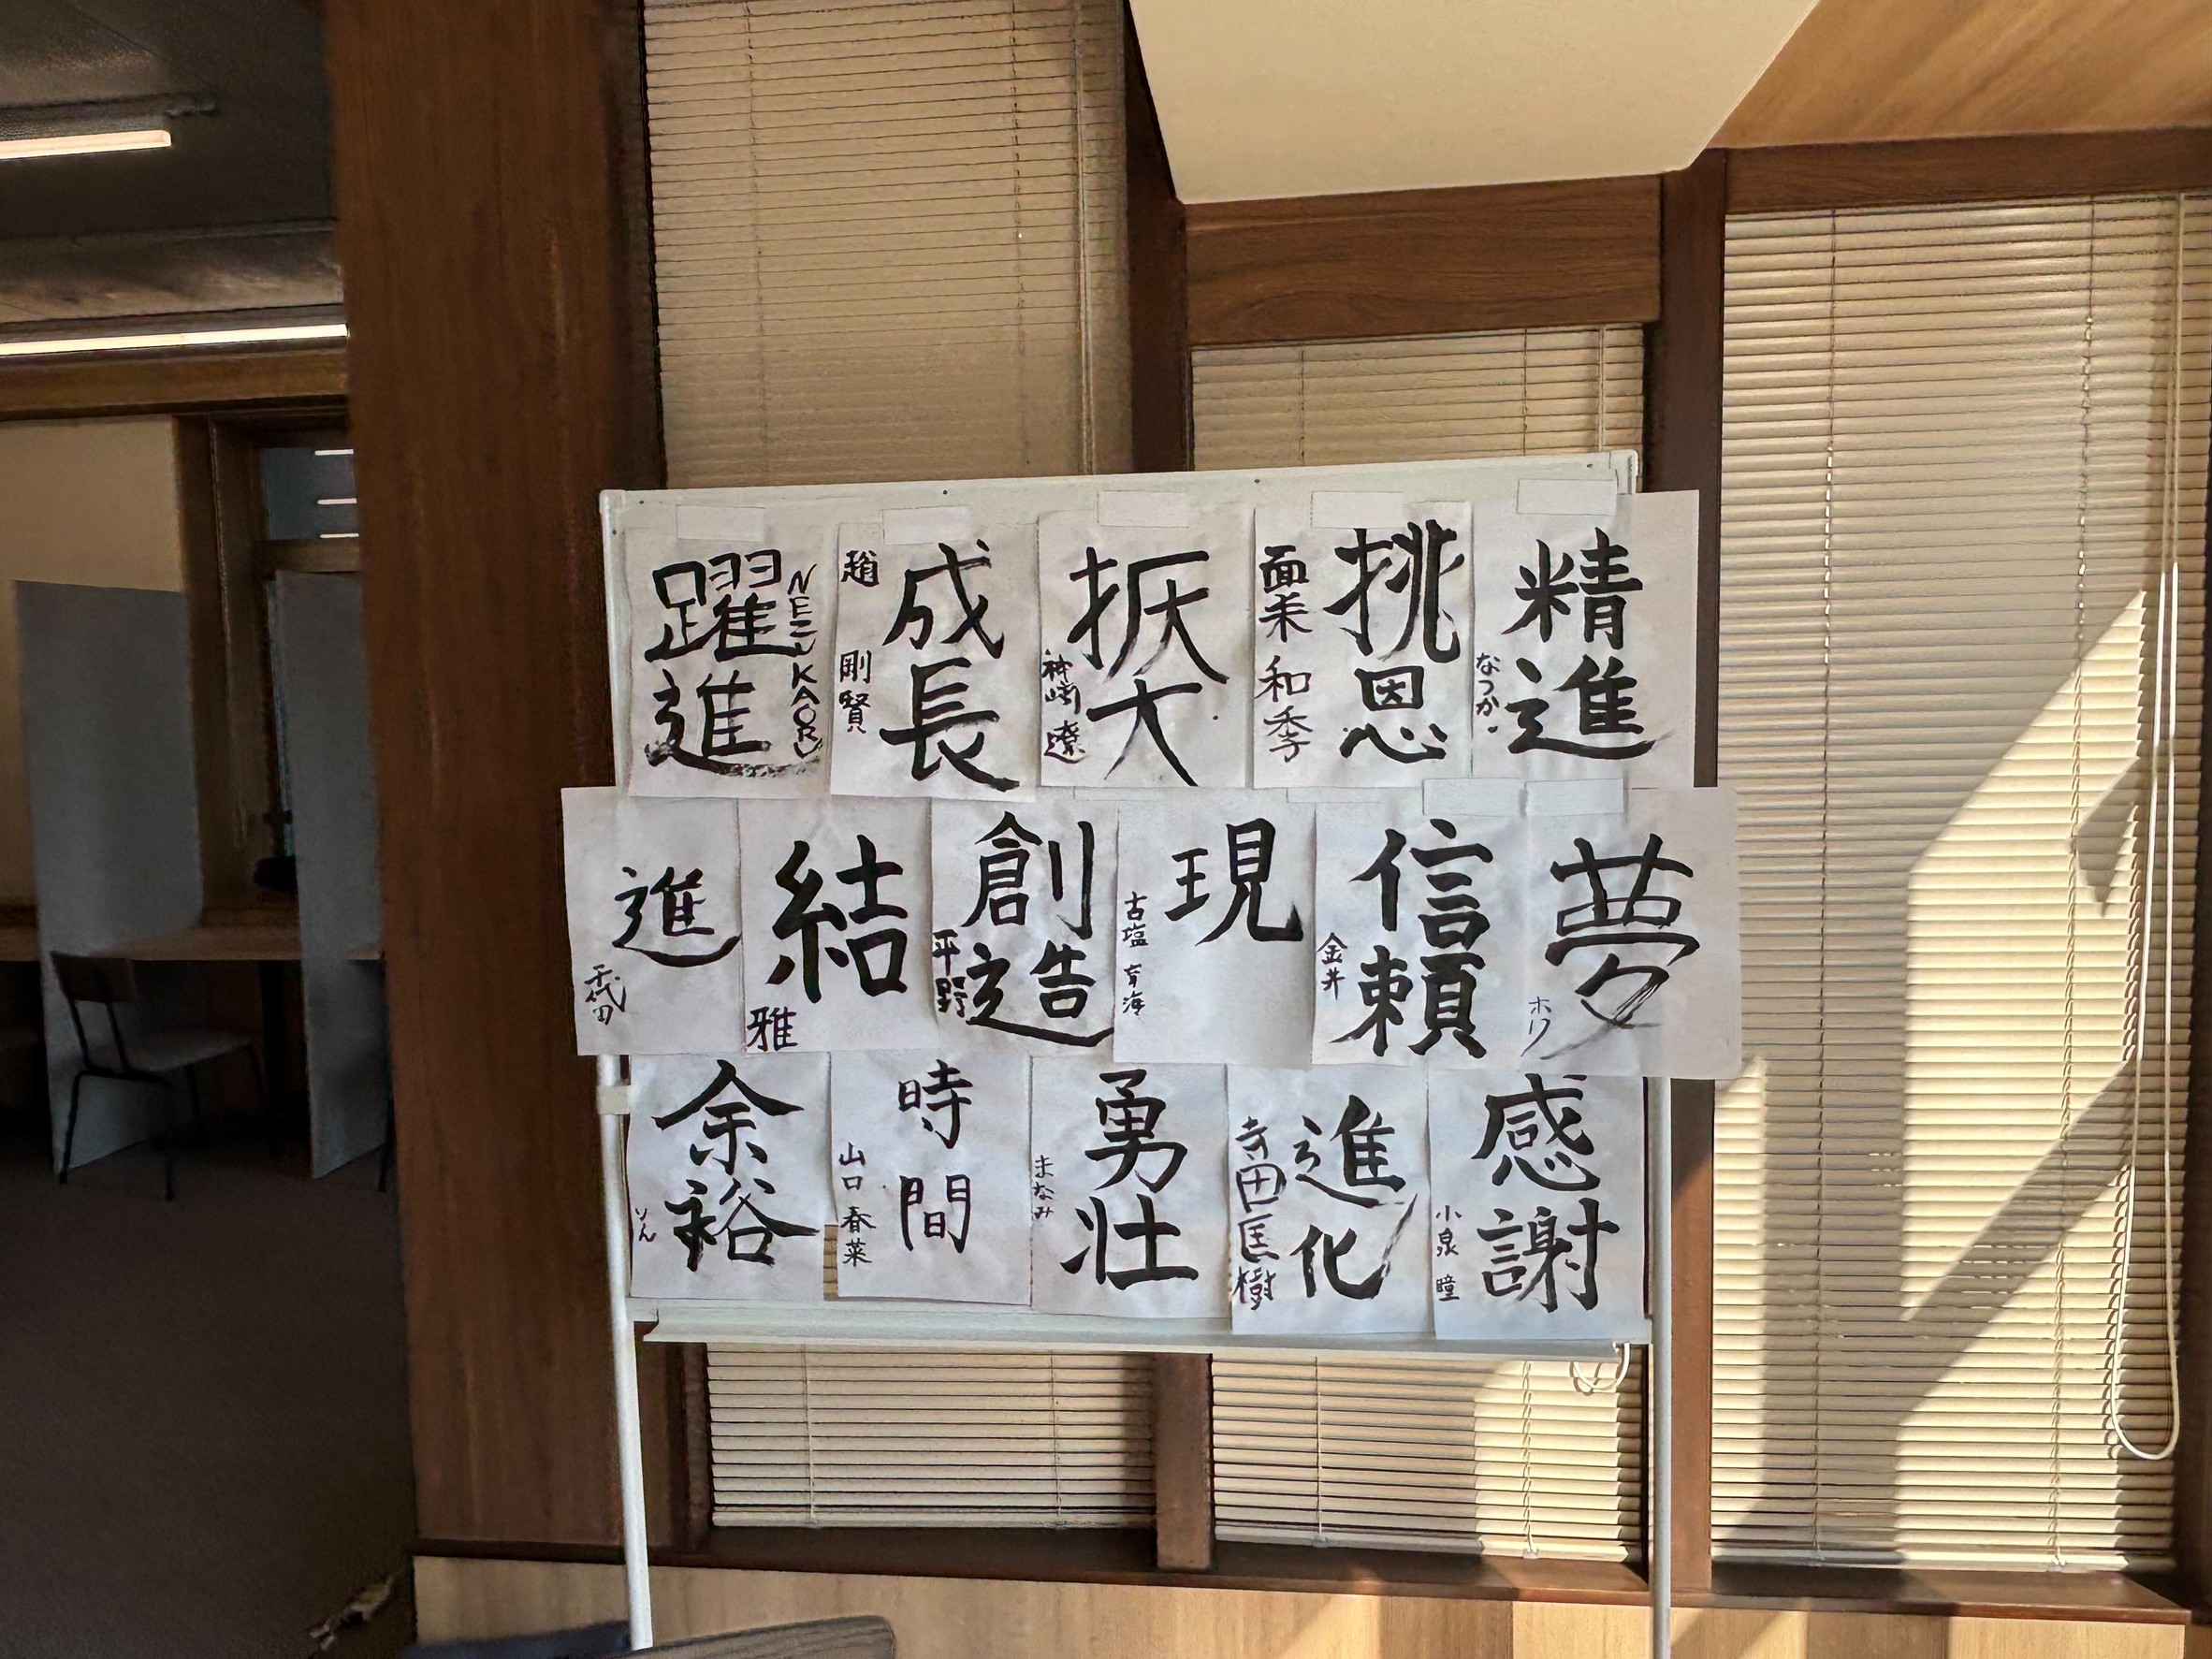 精進
なつか.
挑恩
和季
大
成長
趙 剛賢
躍進
NEZU KAORU
夢
ホリ
信頼
金井
現
古塩 育海
創造
平野
結
雅
進
千代田
感謝
小泉 瞳
進化
寺田匡樹
勇壮
まなみ
時間
山口 春菜
余裕
りん